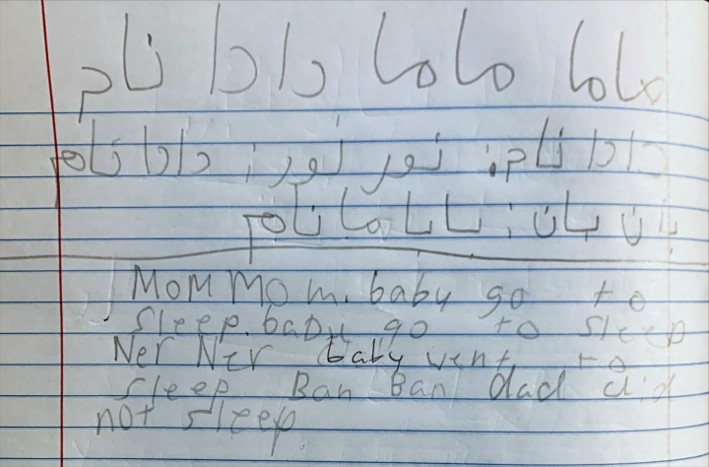 ماما ماما دادا نام
دادا نام. نور نور: دادا نام
بان بان: بابا ما نام
MOM MOM. baby go to
sleep. baby go to sleep
Ner Ner baby went to
sleep Ban Ban dad did
not sleep